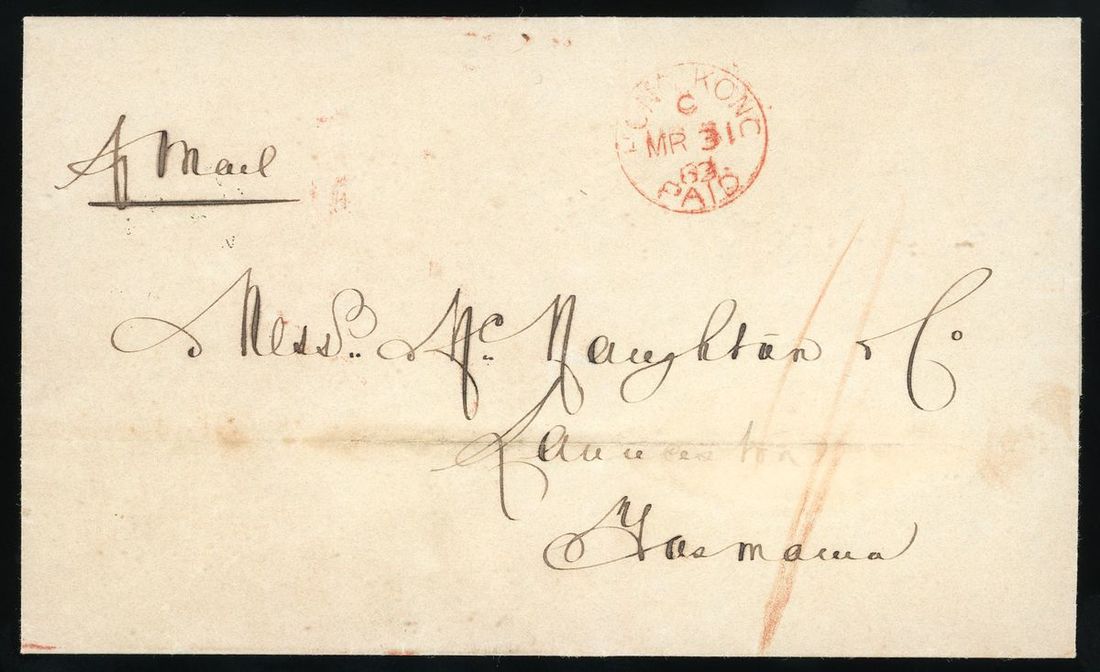 HONG KONG
C
MR 31
63
PAID
℘ Mail
Messrs. McNaughtan & Co
Launceston
Tasmania